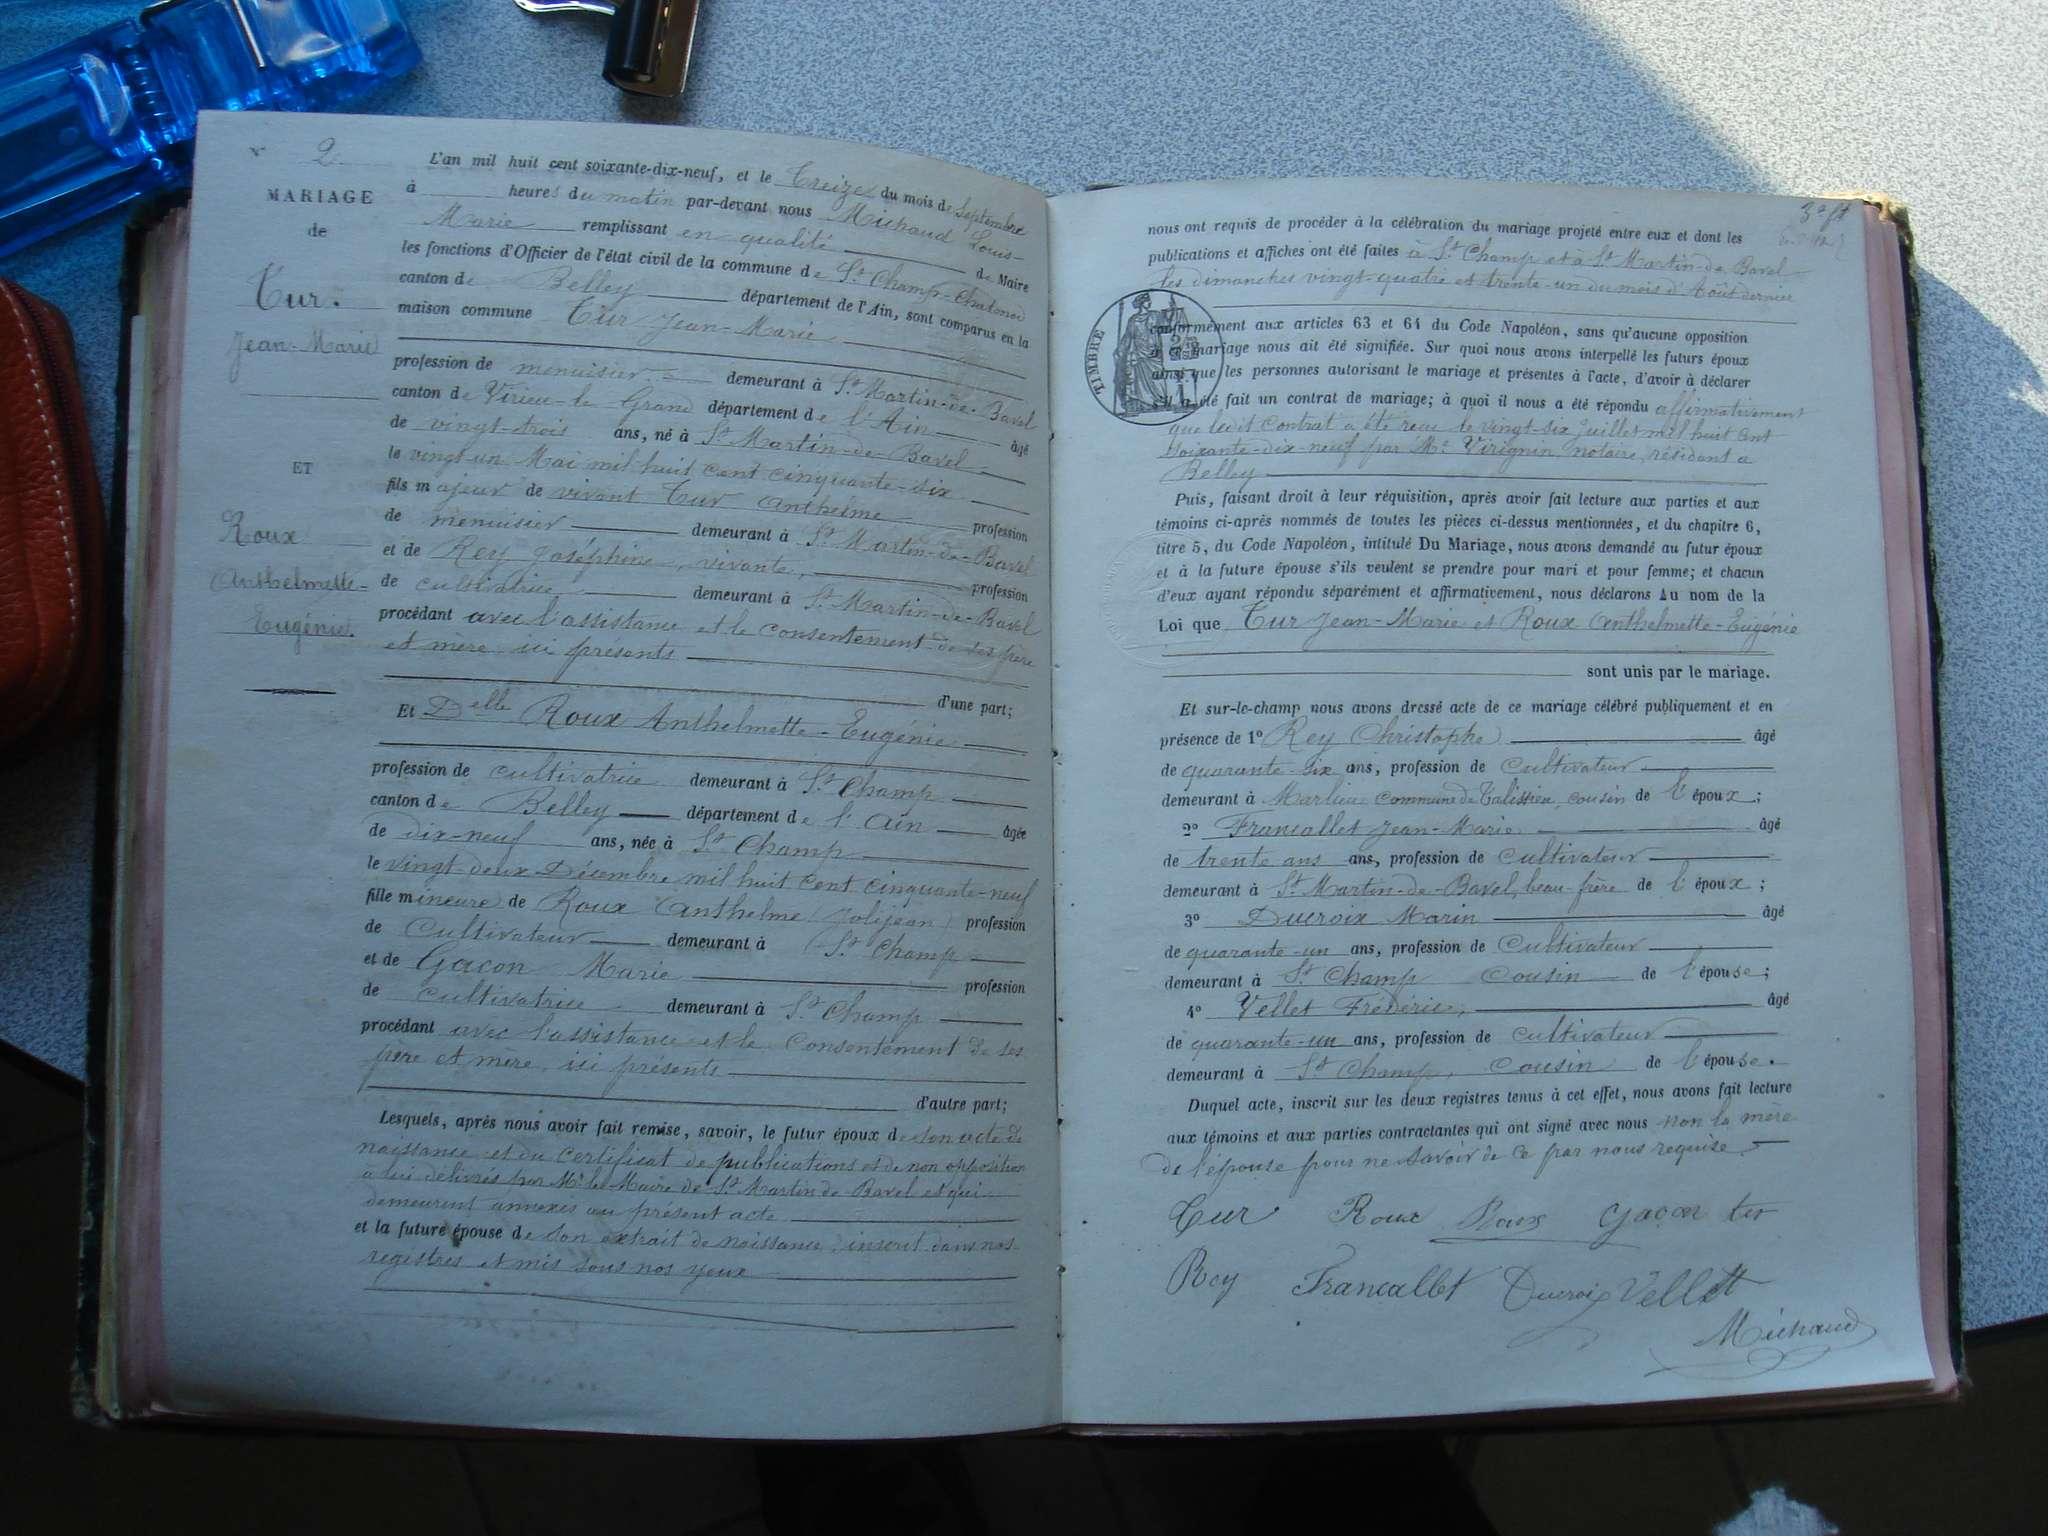 N° 2
MARIAGE
de
Tur.
Jean-Marie
ET
Roux
Anthelmette-
Eugénie.
L'an mil huit cent soixante-dix-neuf, et le Treize du mois de Septembre
à heures du matin par-devant nous Michaud Louis-
Marie remplissant en qualité de Maire
les fonctions d'Officier de l'état civil de la commune de St Champ-Chatonod
canton de Belley département de l'Ain, sont comparus en la
maison commune Tur Jean-Marie
profession de menuisier demeurant à St Martin-de-Bavel
canton de Virieu-le Grand département de l'Ain âgé
de vingt-trois ans, né à St Martin-de-Bavel
le vingt-un Mai mil huit cent cinquante-six
fils majeur de vivant Tur Anthelme profession
de menuisier demeurant à St Martin-de-Bavel
et de Rey Joséphine, vivante, profession
de cultivatrice demeurant à St Martin-de-Bavel
procédant avec l'assistance et le consentement de ses père
et mère ici présents
d'une part;
Et Delle Roux Anthelmette-Eugénie
profession de cultivatrice demeurant à St Champ
canton de Belley département de l'Ain âgée
de dix-neuf ans, née à St Champ
le vingt-deux Décembre mil huit cent cinquante-neuf
fille mineure de Roux Anthelme (Jolijean) profession
de Cultivateur demeurant à St Champ
et de Gacon Marie profession
de cultivatrice demeurant à St Champ
procédant avec l'assistance et le consentement de ses
père et mère, ici présents
d'autre part;
Lesquels, après nous avoir fait remise, savoir, le futur époux de son acte de
naissance et du certificat de publications et de non opposition
à lui délivrés par Mr le Maire de St Martin de Bavel et qui
demeurent annexés au présent acte
et la future épouse de son extrait de naissance, inscrit dans nos
registres et mis sous nos yeux
nous ont requis de procéder à la célébration du mariage projeté entre eux et dont les
publications et affiches ont été faites à St Champ et à St Martin-de-Bavel
les dimanches vingt-quatre et trente-un du mois d'Août dernier
TIMBRE
conformément aux articles 63 et 64 du Code Napoléon, sans qu'aucune opposition
à ce mariage nous ait été signifiée. Sur quoi nous avons interpellé les futurs époux
ainsi que les personnes autorisant le mariage et présentes à l'acte, d'avoir à déclarer
s'il a été fait un contrat de mariage; à quoi il nous a été répondu affirmativement
que ledit Contrat a été reçu le vingt-six Juillet mil huit cent
soixante-dix-neuf par Me Virignin notaire, résidant à
Belley
Puis, faisant droit à leur réquisition, après avoir fait lecture aux parties et aux
témoins ci-après nommés de toutes les pièces ci-dessus mentionnées, et du chapitre 6,
titre 5, du Code Napoléon, intitulé Du Mariage, nous avons demandé au futur époux
et à la future épouse s'ils veulent se prendre pour mari et pour femme; et chacun
d'eux ayant répondu séparément et affirmativement, nous déclarons Au nom de la
Loi que Tur Jean-Marie et Roux Anthelmette-Eugénie
sont unis par le mariage.
Et sur-le-champ nous avons dressé acte de ce mariage célébré publiquement et en
présence de 1° Rey Christophe âgé
de quarante-six ans, profession de Cultivateur
demeurant à Marlieu commune de Talissieu, cousin de l'époux;
2° Francallet Jean-Marie âgé
de trente ans ans, profession de Cultivateur
demeurant à St Martin-de-Bavel, beau-frère de l'époux;
3° Ducroix Marin âgé
de quarante-un ans, profession de Cultivateur
demeurant à St Champ Cousin de l'épouse;
4° Vellet Frédéric, âgé
de quarante-un ans, profession de Cultivateur
demeurant à St Champ, Cousin de l'épouse.
Duquel acte, inscrit sur les deux registres tenus à cet effet, nous avons fait lecture
aux témoins et aux parties contractantes qui ont signé avec nous non la mère
de l'épouse pour ne savoir de ce par nous requise
Tur Roux Roux Gaçon tur
Rey Francallet Ducroix Vellet
Michaud